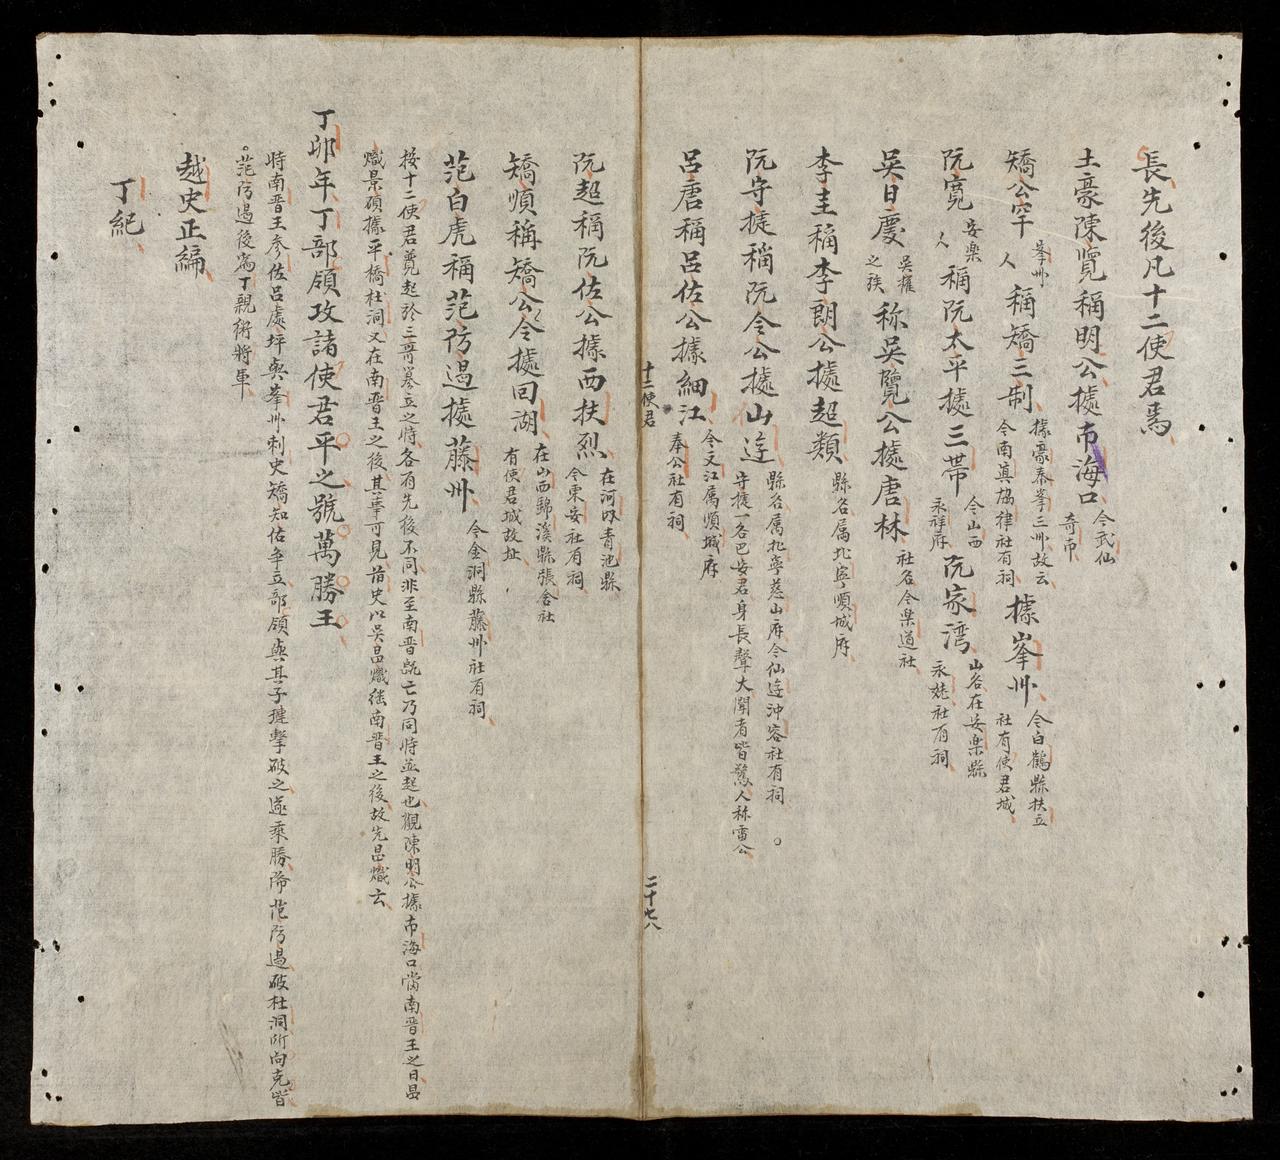 長先後凡十二使君焉
土豪陳覽稱明公據布海口今武仙奇布
矯公罕峯州人稱矯三制據豪泰峯三州故云今南真協律社有祠據峯州今白鶴縣扶立社有使君城
阮寬安樂人稱阮太平據三帶今山西永祥府阮家湾山名在安樂縣永姥社有祠
吳日慶吳權之族称吳覽公據唐林社名今樂道社
李圭稱李朗公據超類縣名属北寧順城府
阮守捷稱阮令公據山遊縣名属北寧慈山府今仙遊冲容社有祠守捷一名巴安君身長聲大聞者皆驚人称雷公
呂唐稱呂佐公據細江今文江属順城府奉公社有祠
十二使君
二十七八
阮超稱阮佐公據西扶烈在河内青池縣今東安社有祠
矯順稱矯令公據回湖在山西錦溪縣張舍社有使君城故址
范白虎稱范防遏據藤州今金洞縣藤州社有祠
按十二使君竟起於三哥纂立之時各有先後不同非至南晋既亡乃同時並起也觀陳明公據布海口當南晋王之日昌
熾景碩據平橋杜洞又在南晋王之後其事可見前史以吳昌熾繼南晋王之後故先昌熾云
丁卯年丁部領攻諸使君平之號萬勝王
時南晋王参佐呂處坪與峯州刺史矯知佑争立部領與其子璉擊破之遂乘勝降范防遏破杜洞所向克皆
范防遏後爲丁親衛將軍
越史正編
丁紀